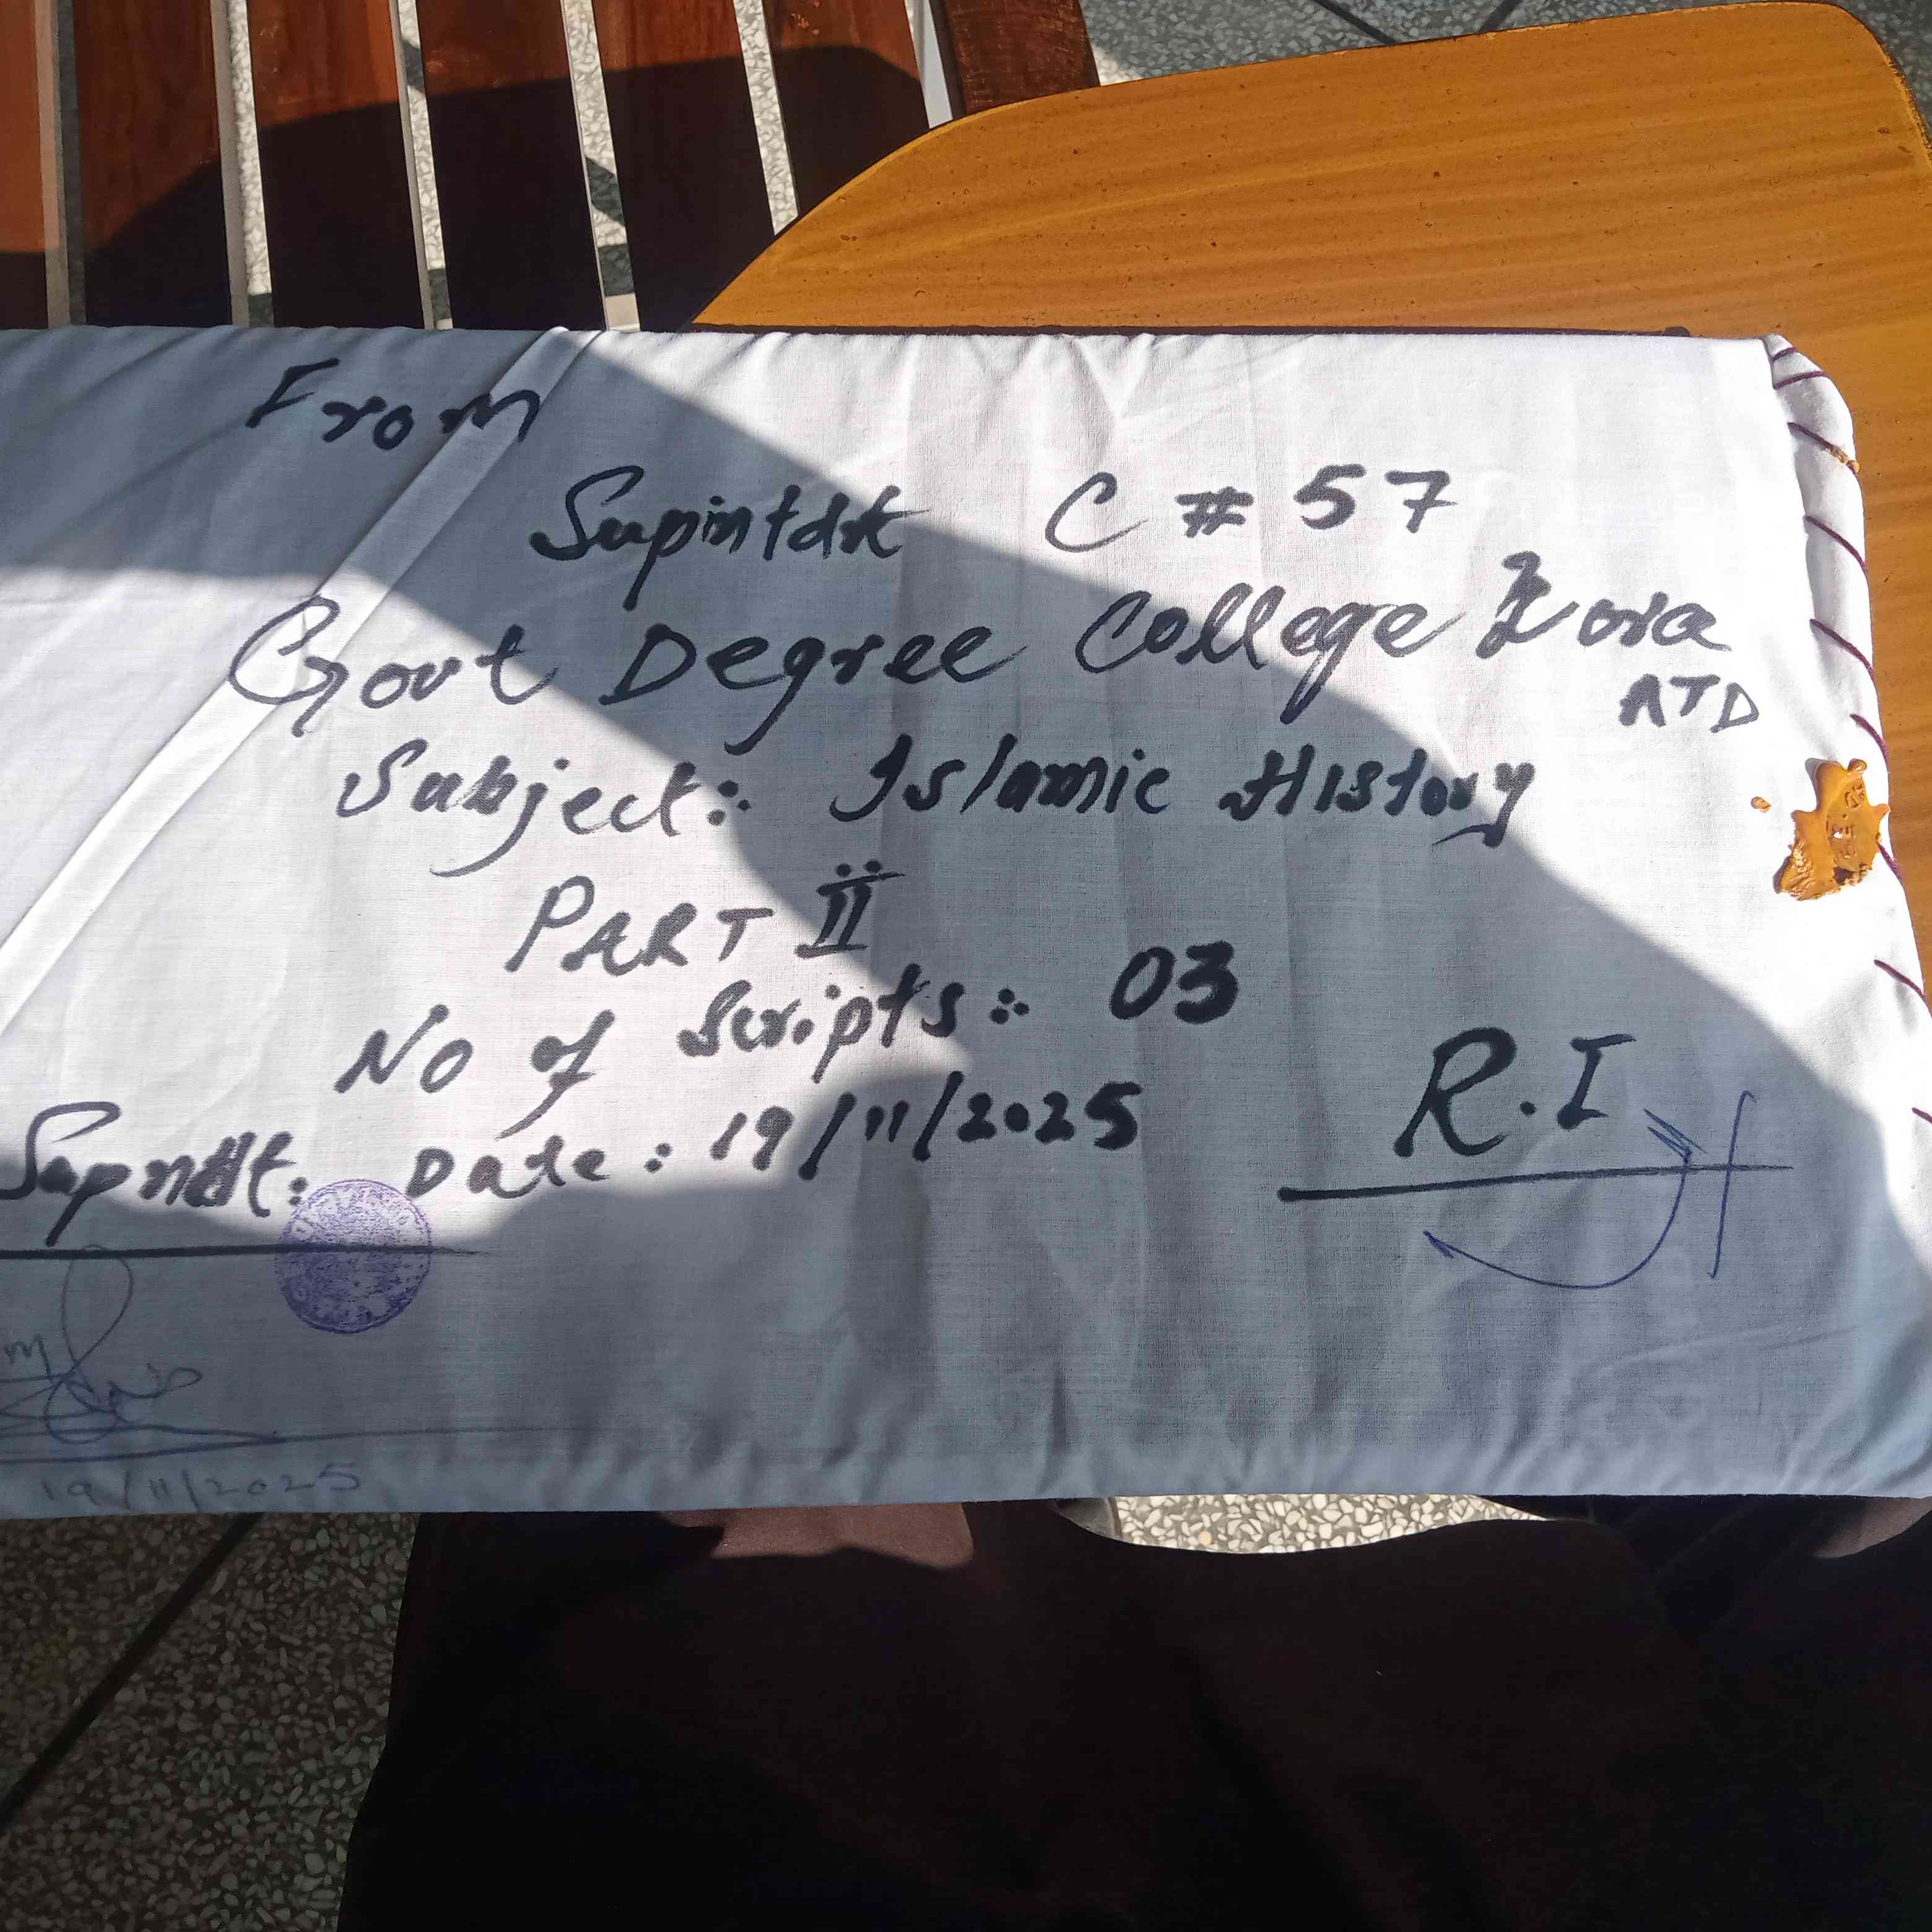 From
Supintdt C # 57
Govt Degree College Zora
ATD
Subject:. Islamic History
PART II
No of Scripts :. 03
R.I
Supndtt: Date : 19/11/2025
19/11/2025